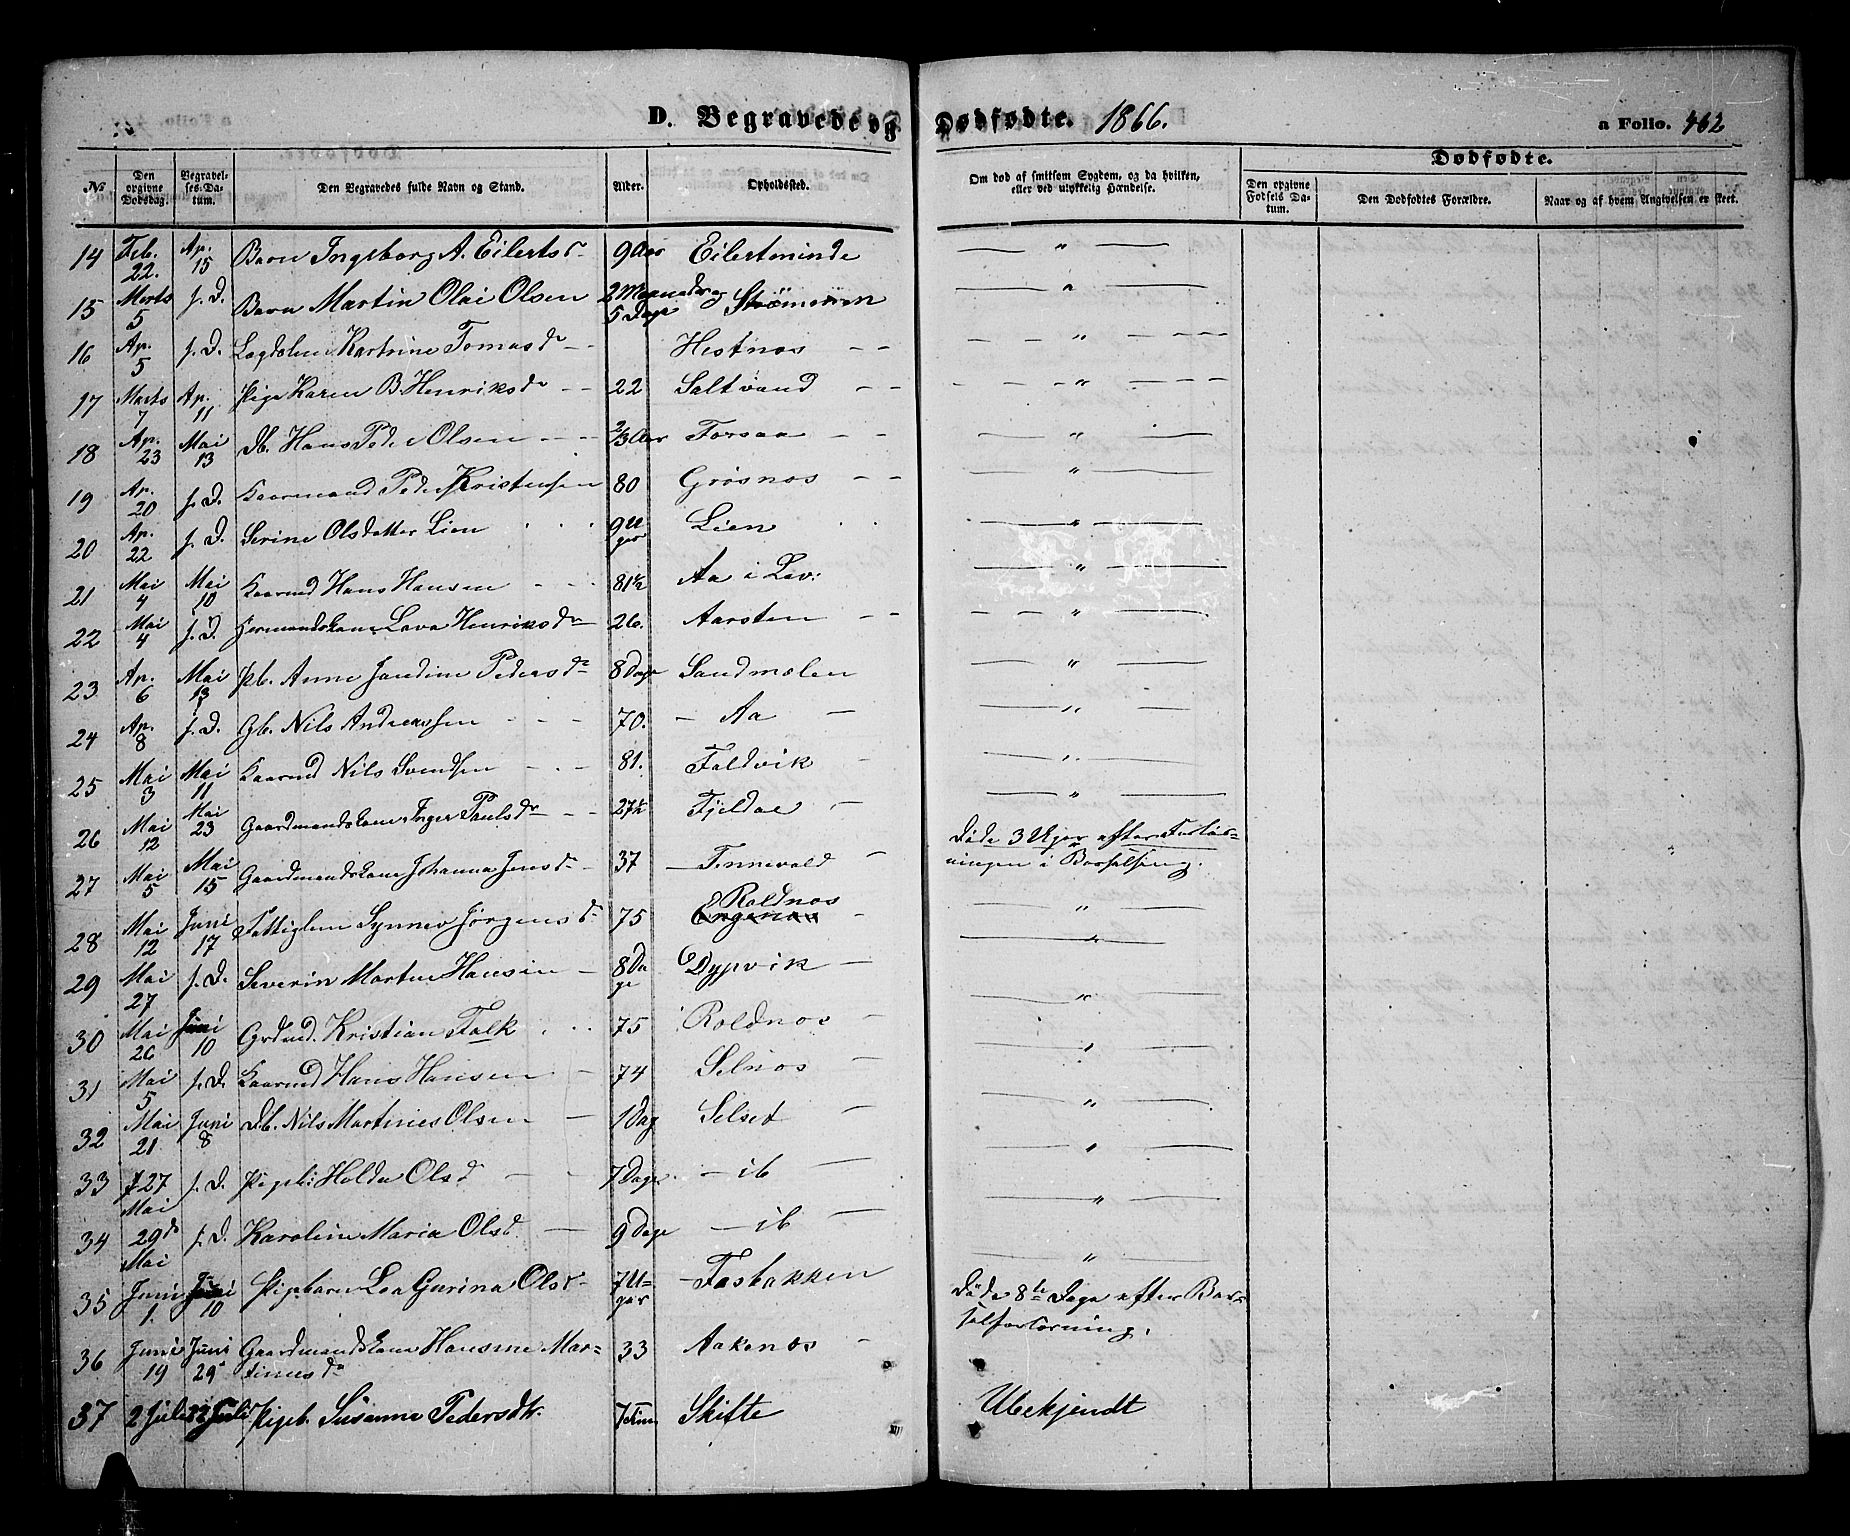 D. Begravede og Dødfødte. 1866. a Folio. 462
Dødfødte.
№ Den opgivne Dødsdag. Begravelses-Datum. Den Begravedes fulde Navn og Stand. Alder. Opholdssted. Om død af smitsom Sygdom, og da hvilken, eller ved ulykkelig Hændelse. Den opgivne Fødsels Datum. Den Dødfødtes Forældre. Naar og af hvem Angivelsen er skeet.
14 Feb. 22. Ap. 15 Barn Ingeborg A. Eilertsd. 9 Aar Eilertminde — " —
15 Marts 5 f. D. Barn Martin Olai Olsen 2 Maaneder og 5 Dage — " —
16 Ap. 5 f. D. Lægdslem Kartrine Tomasdr — — Hestnæs — — — " —
17 Marts 7 Ap. 11 Pige Karen B. Henriksdr — — 22 Saltvand — — — " —
18 Ap. 23 Mai 13 Db. Hans Peder Olsen — — 2/3 Aar Forsaa — — — " —
19 Ap. 20 f. D. Kaarmand Peder Kristensen 80 Grøsnæs — — — " —
20 Ap. 22 f. D. Serine Olsdatter Lien 9 Uger Lien — " —
21 Mai 4 Mai 10 Kaarmd Hans Hansen — — 81½ Aa i Lav: — " —
22 Mai 4 f. D. Lava Henriksdr 26. Aarsten — — — " —
23 Ap. 6 Mai 13 Pb. Anne Jandine Pedersdr 8 Dage Sandmælen — " —
24 Ap. 8 f. D. Gb. Nils Andreassen — — — 70. — Aa — — " —
25 Mai 3 Mai 11 Kaarmd Nils Svendsen — — 81. Foldvik — — " —
26 Mai 12 Mai 23 Gaardmandskone Inger Paulsdr — — 27½ Fjeldal — — " —
27 Mai 5 Mai 15 Gaardmandskone Johanna Jensdr — 37 — Tennevold — Døde 3 Uger efter Forløsningen i Barselseng.
28 Mai 12 Juni 17 Fattiglem Synnev Jørgensdr 75 Roldnæs — — " —
29 Mai 27 f. D. Severin Martin Hansen — 8 Dage Dypvik — — " —
30 Mai 26 Juni 10 Grdmd. Kristian Falk 75 Roldnæs — — " —
31 Mai 5 f. D. Kaarmd Hans Hansen — 74 Selnæs — — " —
32 Mai 21 Juni 8 Db. Nils Martines Olsen — 1 Dag Selset — — " —
33 27 Mai f. D. Pigeb: Holda Olsd — — 7 Dage. — ib — — " —
34 29de Mai f. D. Karoline Maria Olsd. — 9 Dage — ib — — " —
35 Juni 1. Juni 10 Pigebarn Lea Gurina Olsdr 7 Uger — Fosbakken — " —
36 Juni 19 Juni 29 Gaardmandskone Hansine Martinusdr 33 Aakenæs — Døde 8de Dage efter Barselforløsning.
37 2 Juli 22 Juli Pigeb. Susanne Pedersdtr. 7 Tim Skifte Ubekjendt